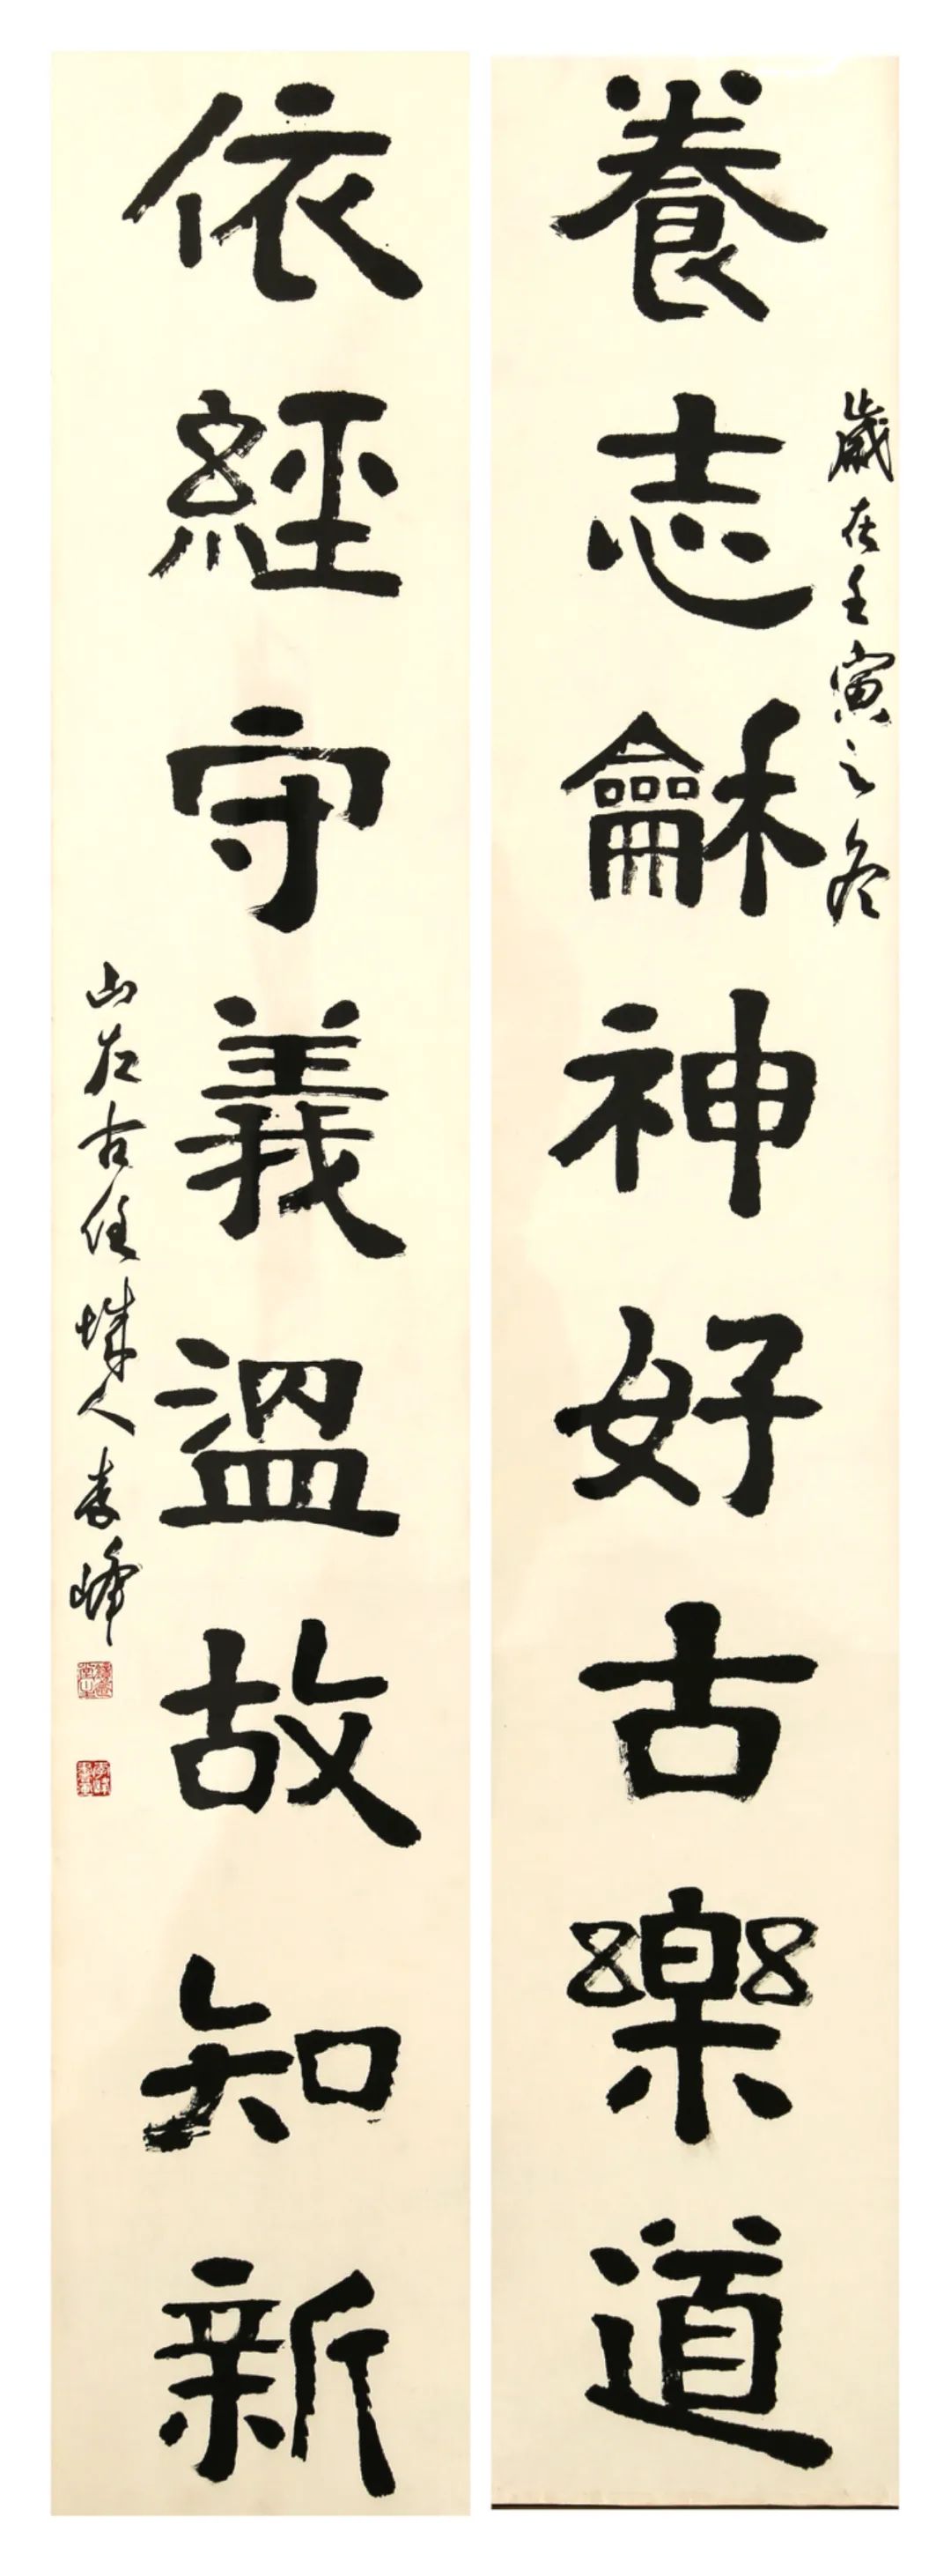 歲在壬寅之冬
養志龢神好古樂道
依經守義溫故知新
山左古任城人李峰